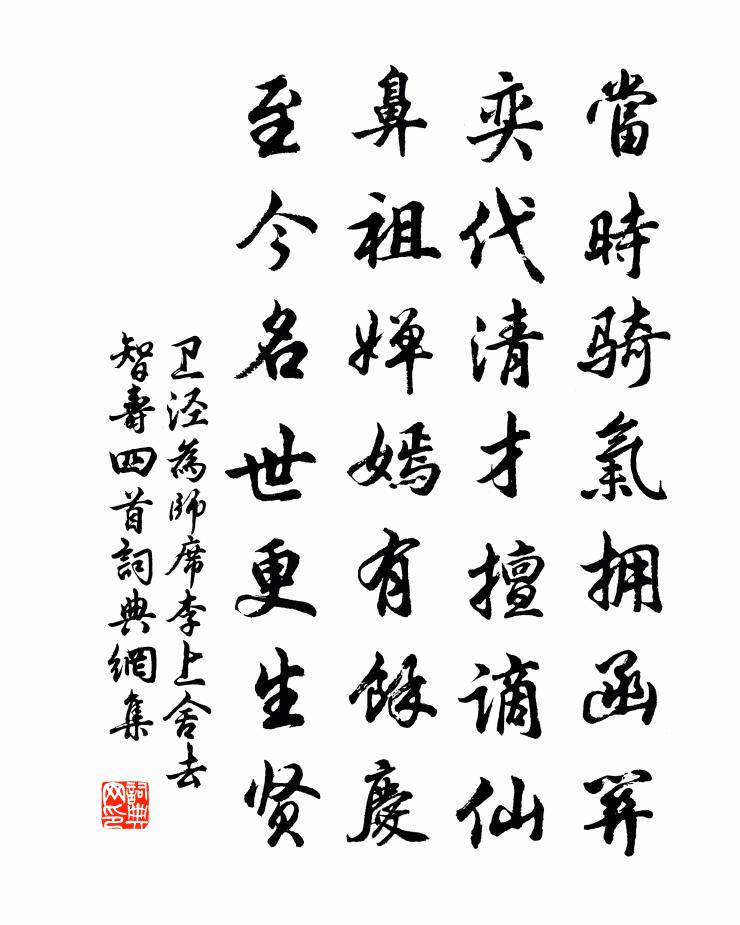 當時騎氣拥函關
奕代清才擅謫仙
鼻祖嬋嫣有餘慶
至今名世更生贤
卫泾為師席李上舍去
智壽四首詞典網集
詞典网印